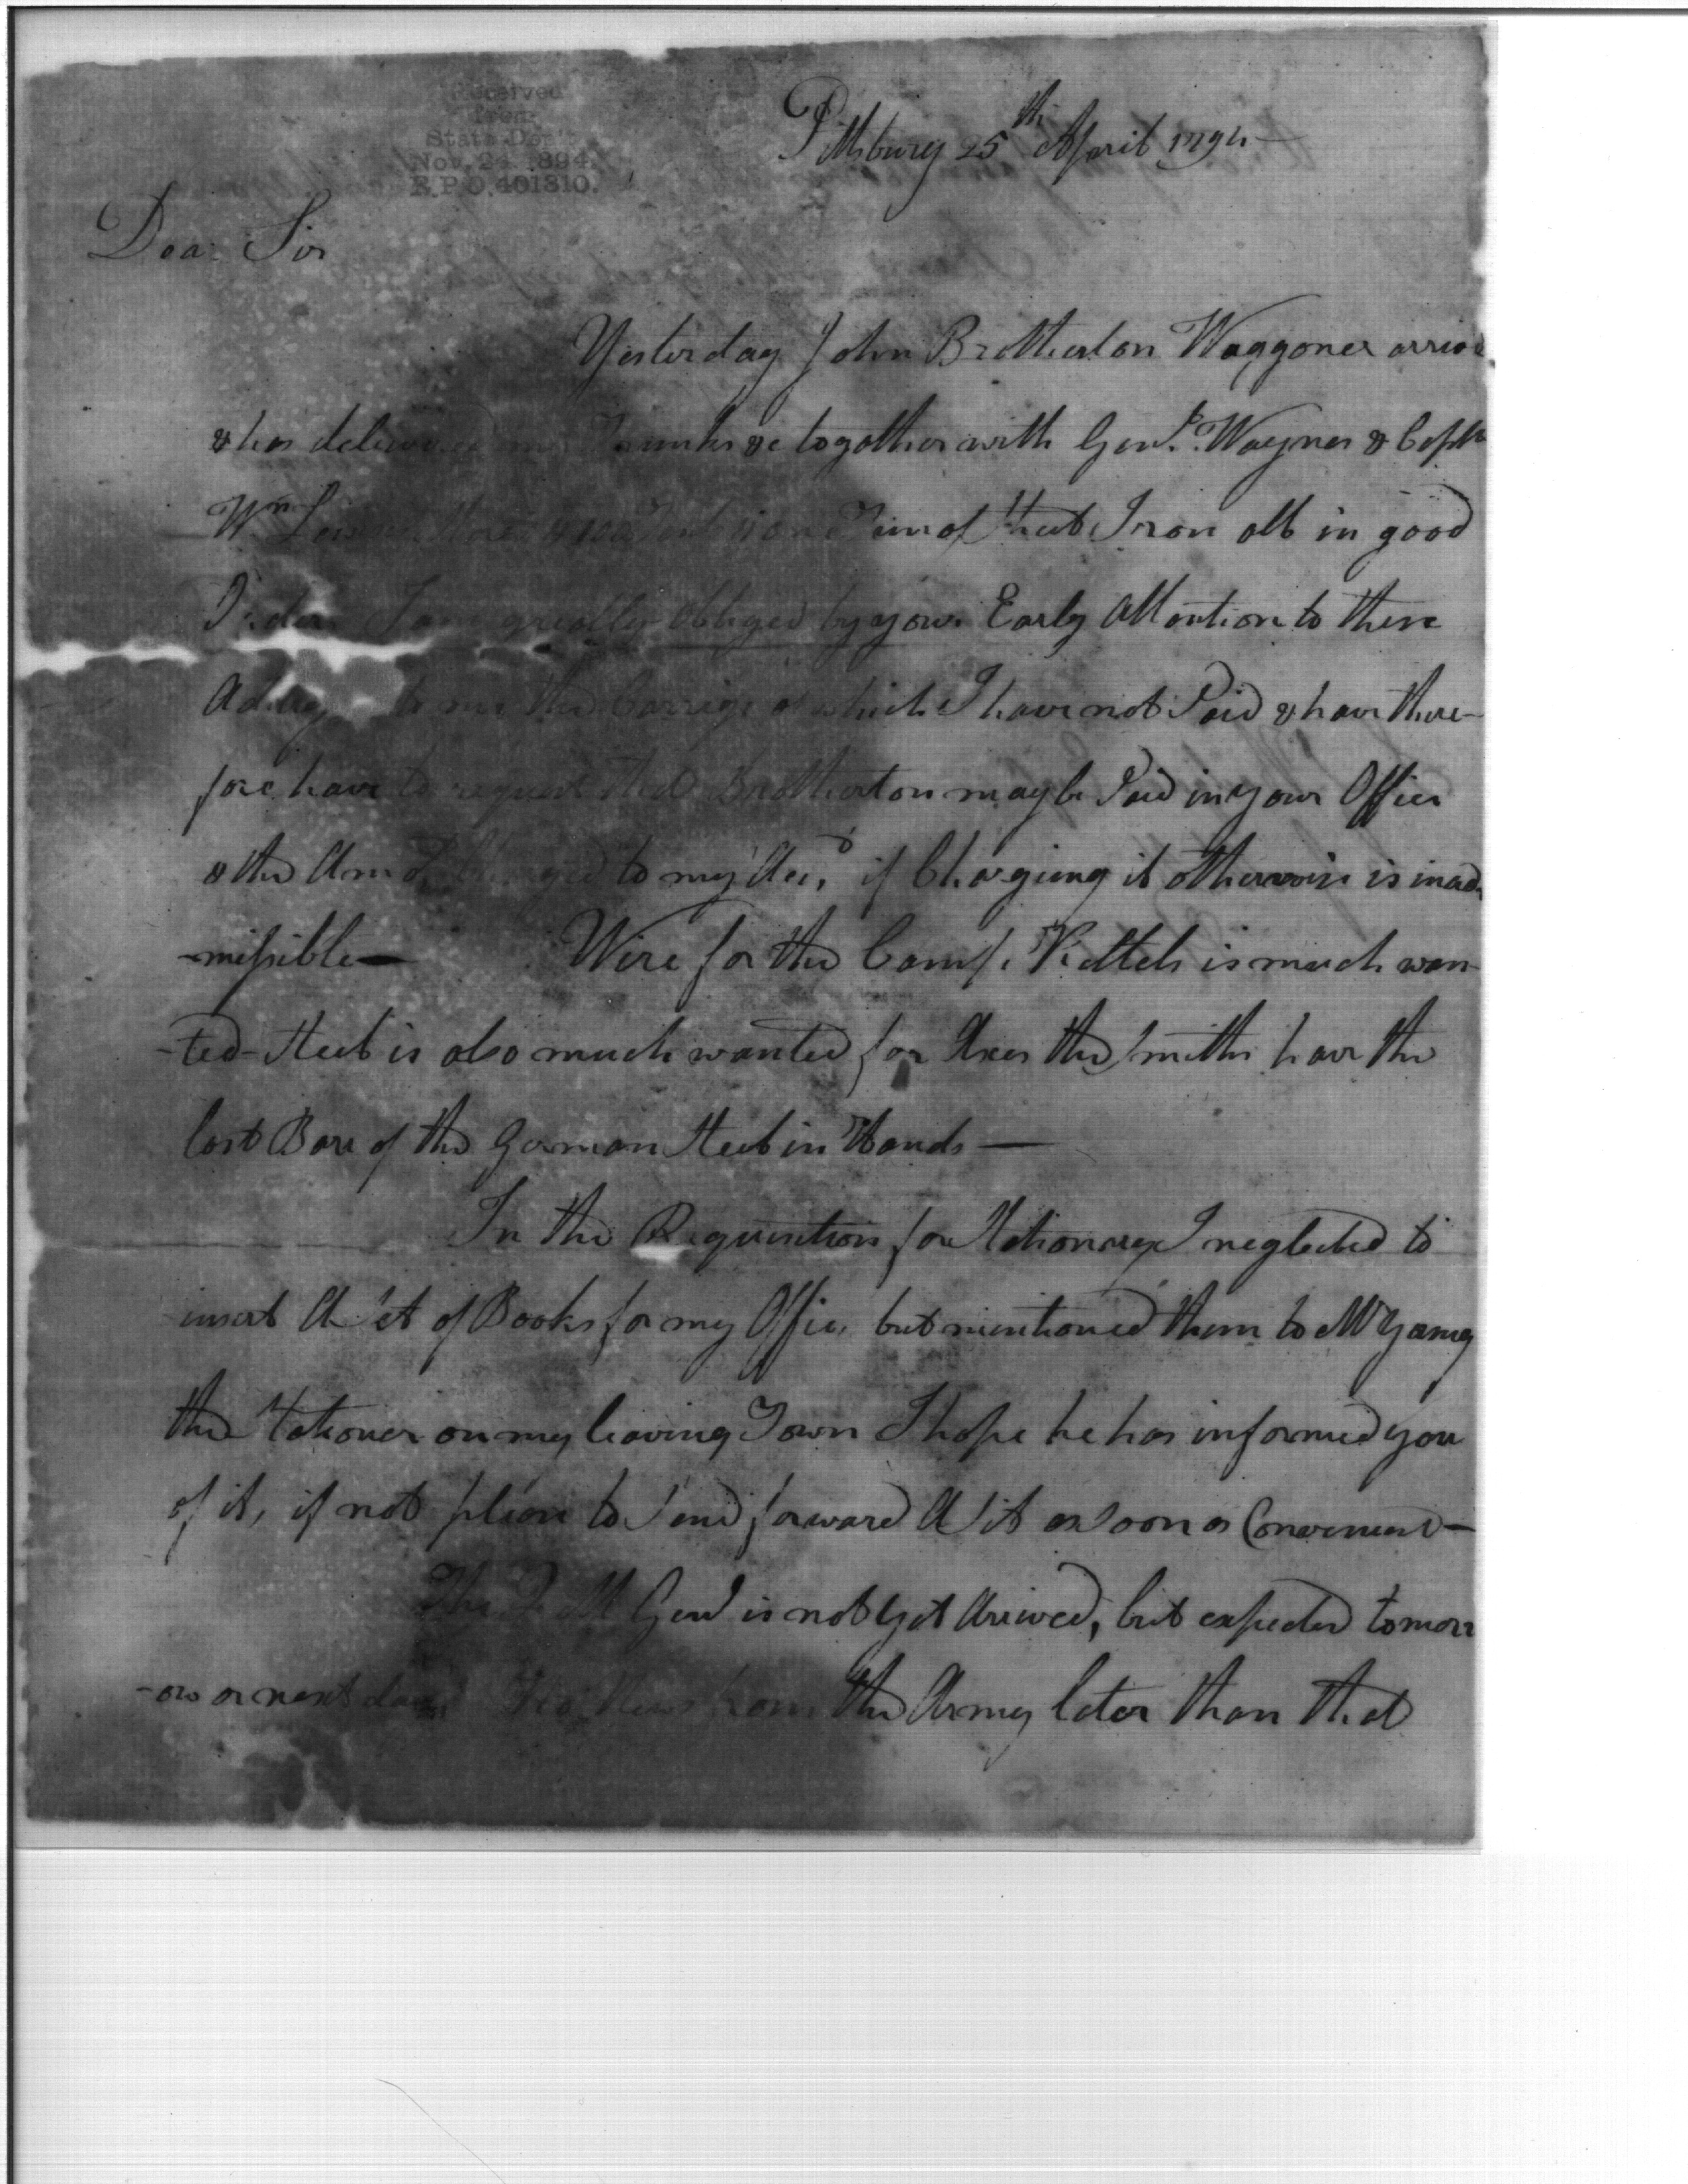 Received
from
State Dep't
Nov. 24 1894.
R.P.O. 401310.
Pittsburg 25th April 1794 —
Dear Sir
Yesterday John Brotherton Waggoner arrived
& has delivered my Trunks &c together with Genl. Waynes & Captn
Wm one of Iron all in good
Order I am greatly obliged by your Early Attention to these
to me the Carriage of which I have not Paid & have there-
fore have to request that Brotherton may be Paid in your Office
& the Amot. Charged to my Acct. if Chargeing it otherwise is inad
-missible — Wire for the Camp Kettels is much wan
-ted - Steel is also much wanted for Axes the Smiths have the
last Bare of the German Steel in Hands —
In the Requisition for Stationary I neglected to
insert A Set of Books for my Office but mentioned them to Mr Young
the Stationer on my leaving Town I hope he has informed you
of it, if not please to Send forward A Set as Soon as Convenient —
The Q M Genl is not Yet Arived, but expected tomorr
-ow or next day No News from the Army later than that